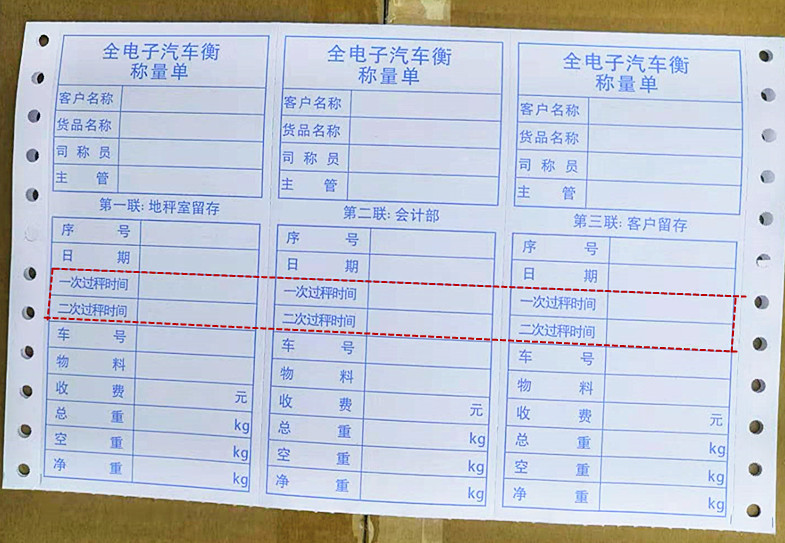 全电子汽车衡
称量单
客户名称
货品名称
司称员
主管
第一联:地秤室留存
序号
日期
一次过秤时间
二次过秤时间
车号
物料
收费 元
总重 kg
空重 kg
净重 kg
全电子汽车衡
称量单
客户名称
货品名称
司称员
主管
第二联:会计部
序号
日期
一次过秤时间
二次过秤时间
车号
物料
收费 元
总重 kg
空重 kg
净重 kg
全电子汽车衡
称量单
客户名称
货品名称
司称员
主管
第三联:客户留存
序号
日期
一次过秤时间
二次过秤时间
车号
物料
收费 元
总重 kg
空重 kg
净重 kg